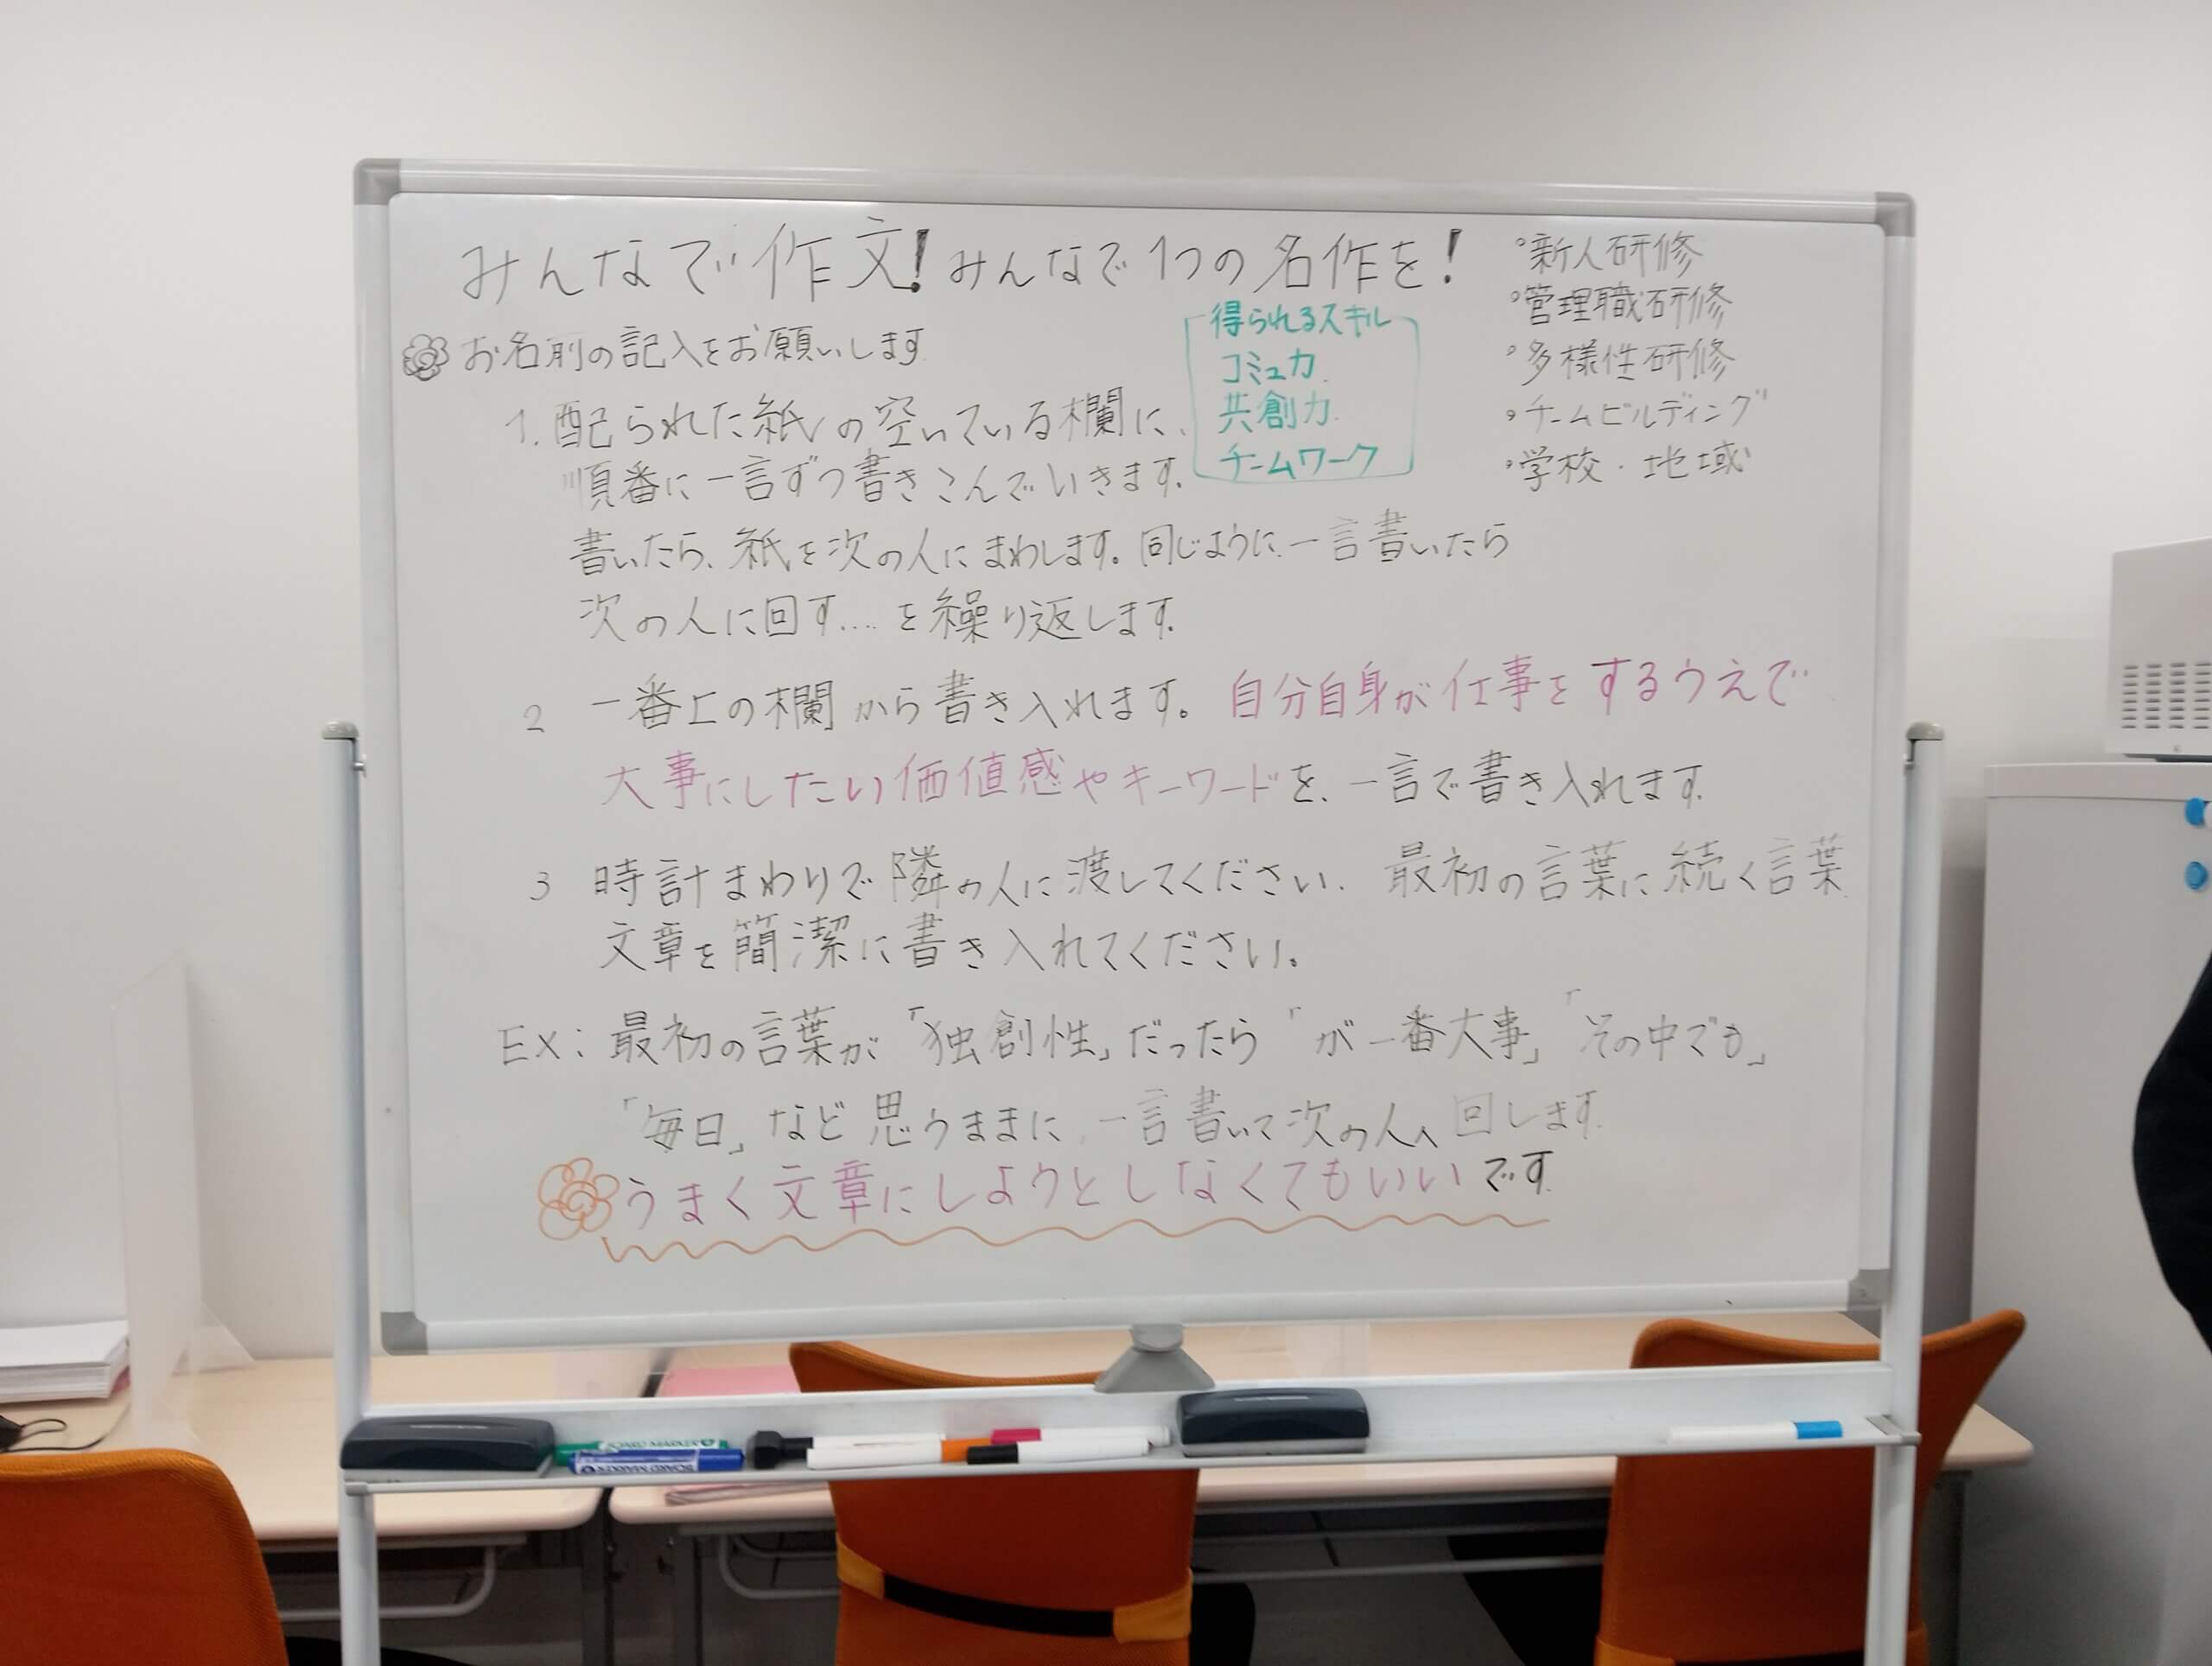 みんなで作文!みんなで1つの名作を!
お名前の記入をお願いします
1. 配られた紙の空いている欄に、
順番に一言ずつ書きこんでいきます。
書いたら、紙を次の人にまわします。同じように一言書いたら
次の人に回す....を繰り返します。
2 一番上の欄から書き入れます。自分自身が仕事をするうえで
大事にしたい価値感やキーワードを、一言で書き入れます。
3 時計まわりで隣の人に渡してください. 最初の言葉に続く言葉
文章を簡潔に書き入れてください。
EX: 最初の言葉が「独創性」だったら「が一番大事」「その中でも」
「毎日」など思うままに、一言書いて次の人へ回します。
うまく文章にしようとしなくてもいいです
得られるスキル
コミュ力
共創力
チームワーク
°新人研修
°管理職研修
°多様性研修
°チームビルディング
°学校・地域
BOARD MARKER
BOARD MARKER